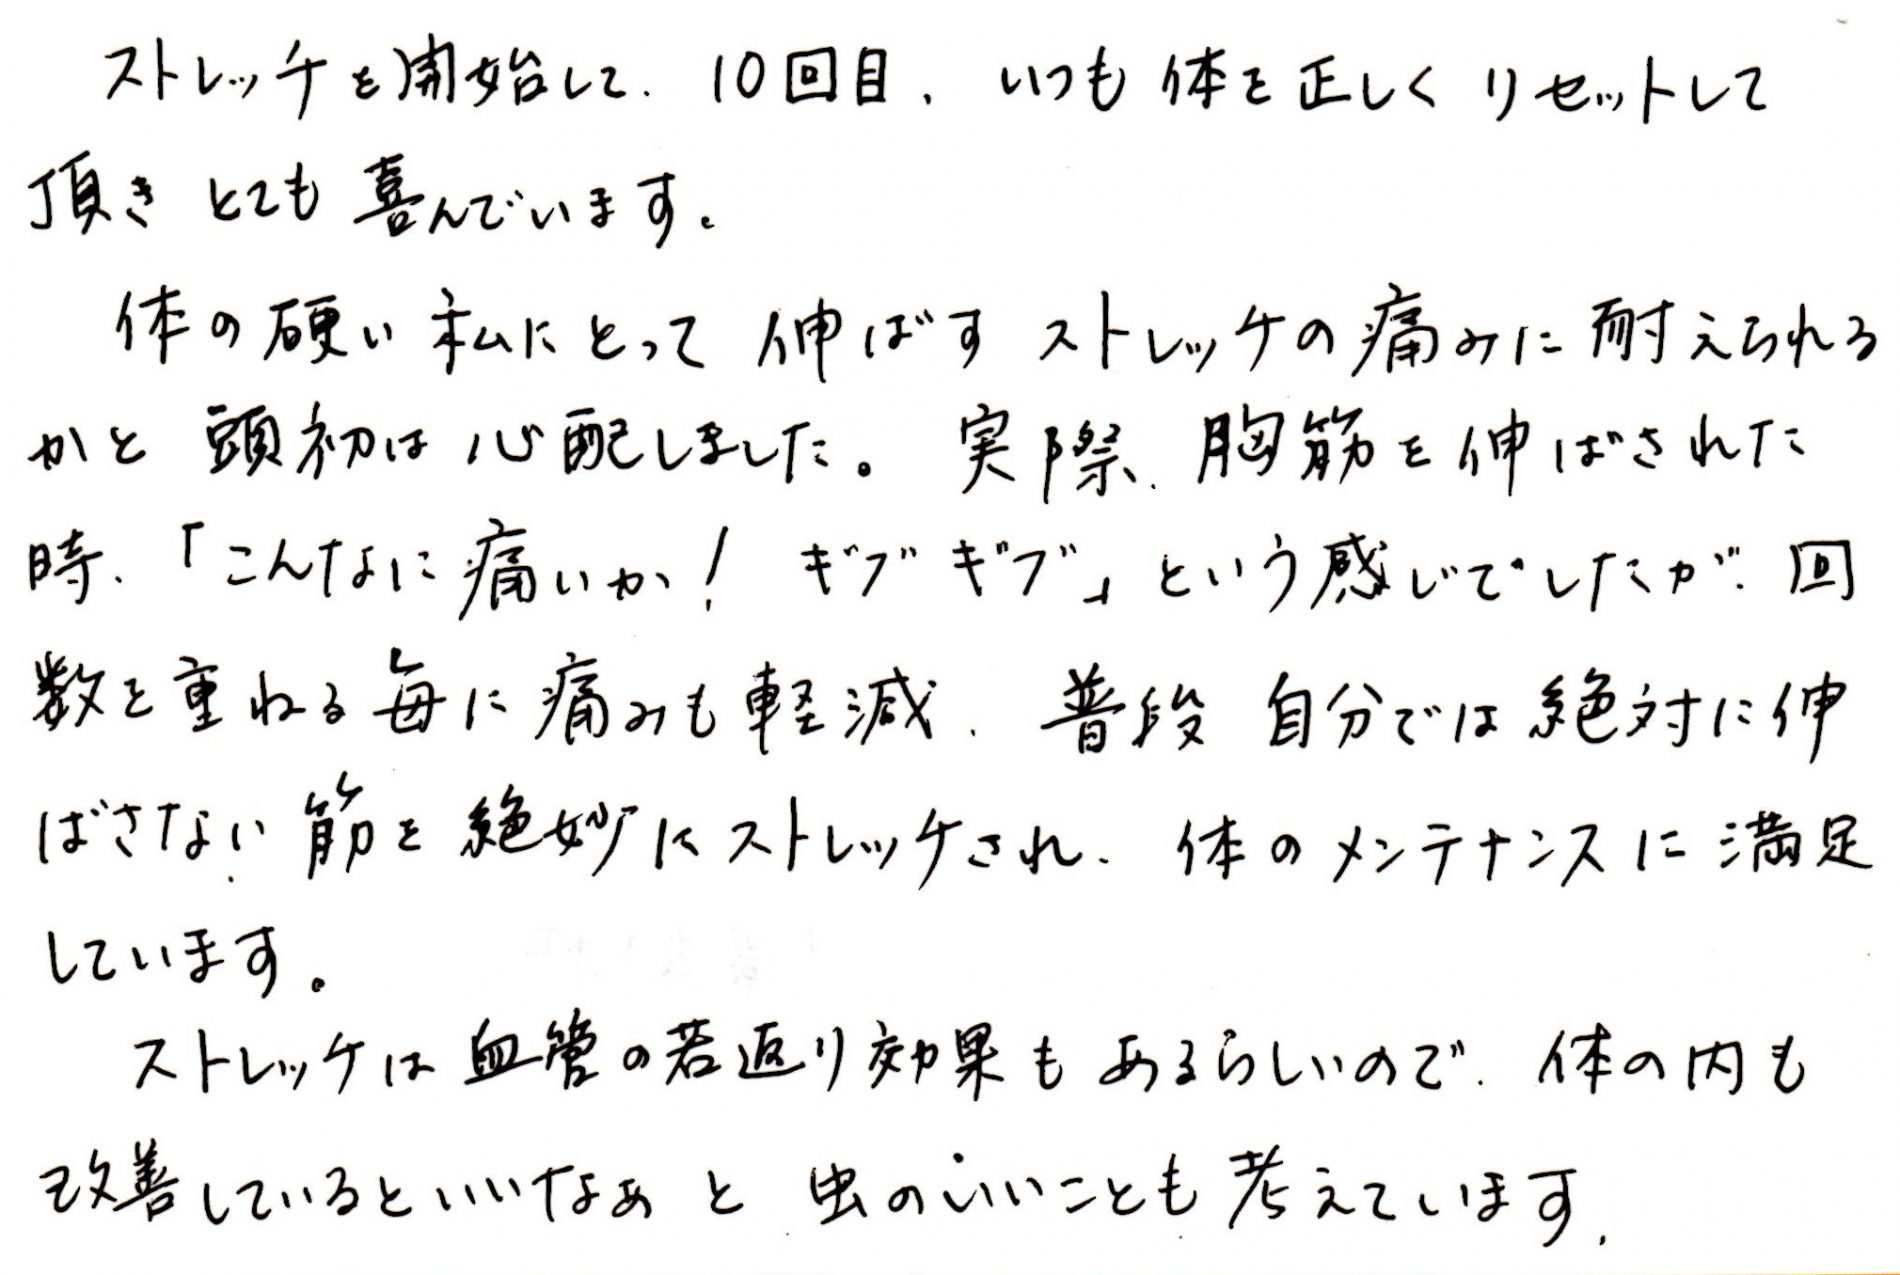 ストレッチを開始して、10回目、いつも体を正しくリセットして
頂きとても喜んでいます。
体の硬い私にとって伸ばすストレッチの痛みに耐えられる
かと頭初は心配しました。実際、胸筋を伸ばされた
時、「こんなに痛いか！ギブギブ」という感じでしたが、回
数を重ねる毎に痛みも軽減、普段自分では絶対に伸
ばさない筋を絶妙にストレッチされ、体のメンテナンスに満足
しています。
ストレッチは血管の若返り効果もあるらしいので、体の内も
改善しているといいなぁと虫のいいことも考えています。